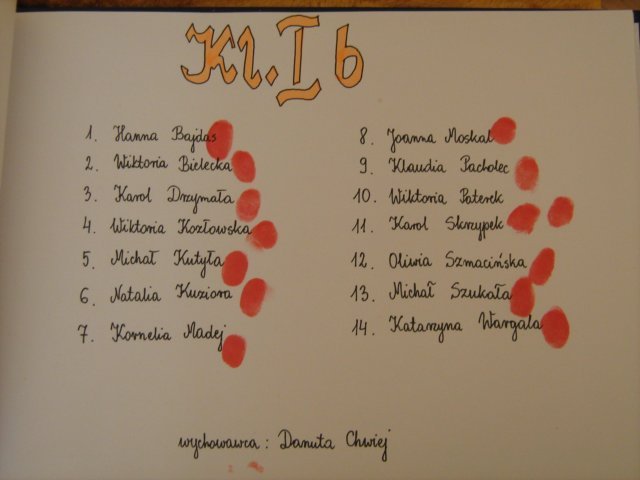 Kl. I b
1. Hanna Bajdas
2. Wiktoria Bielecka
3. Karol Drzymała
4. Wiktoria Kozłowska
5. Michał Kutyła
6. Natalia Kuziora
7. Kornelia Madej
8. Joanna Moskal
9. Klaudia Pacholec
10. Wiktoria Paterek
11. Karol Skrzypek
12. Oliwia Szmacińska
13. Michał Szukała
14. Katarzyna Wargala
wychowawca: Danuta Chwiej